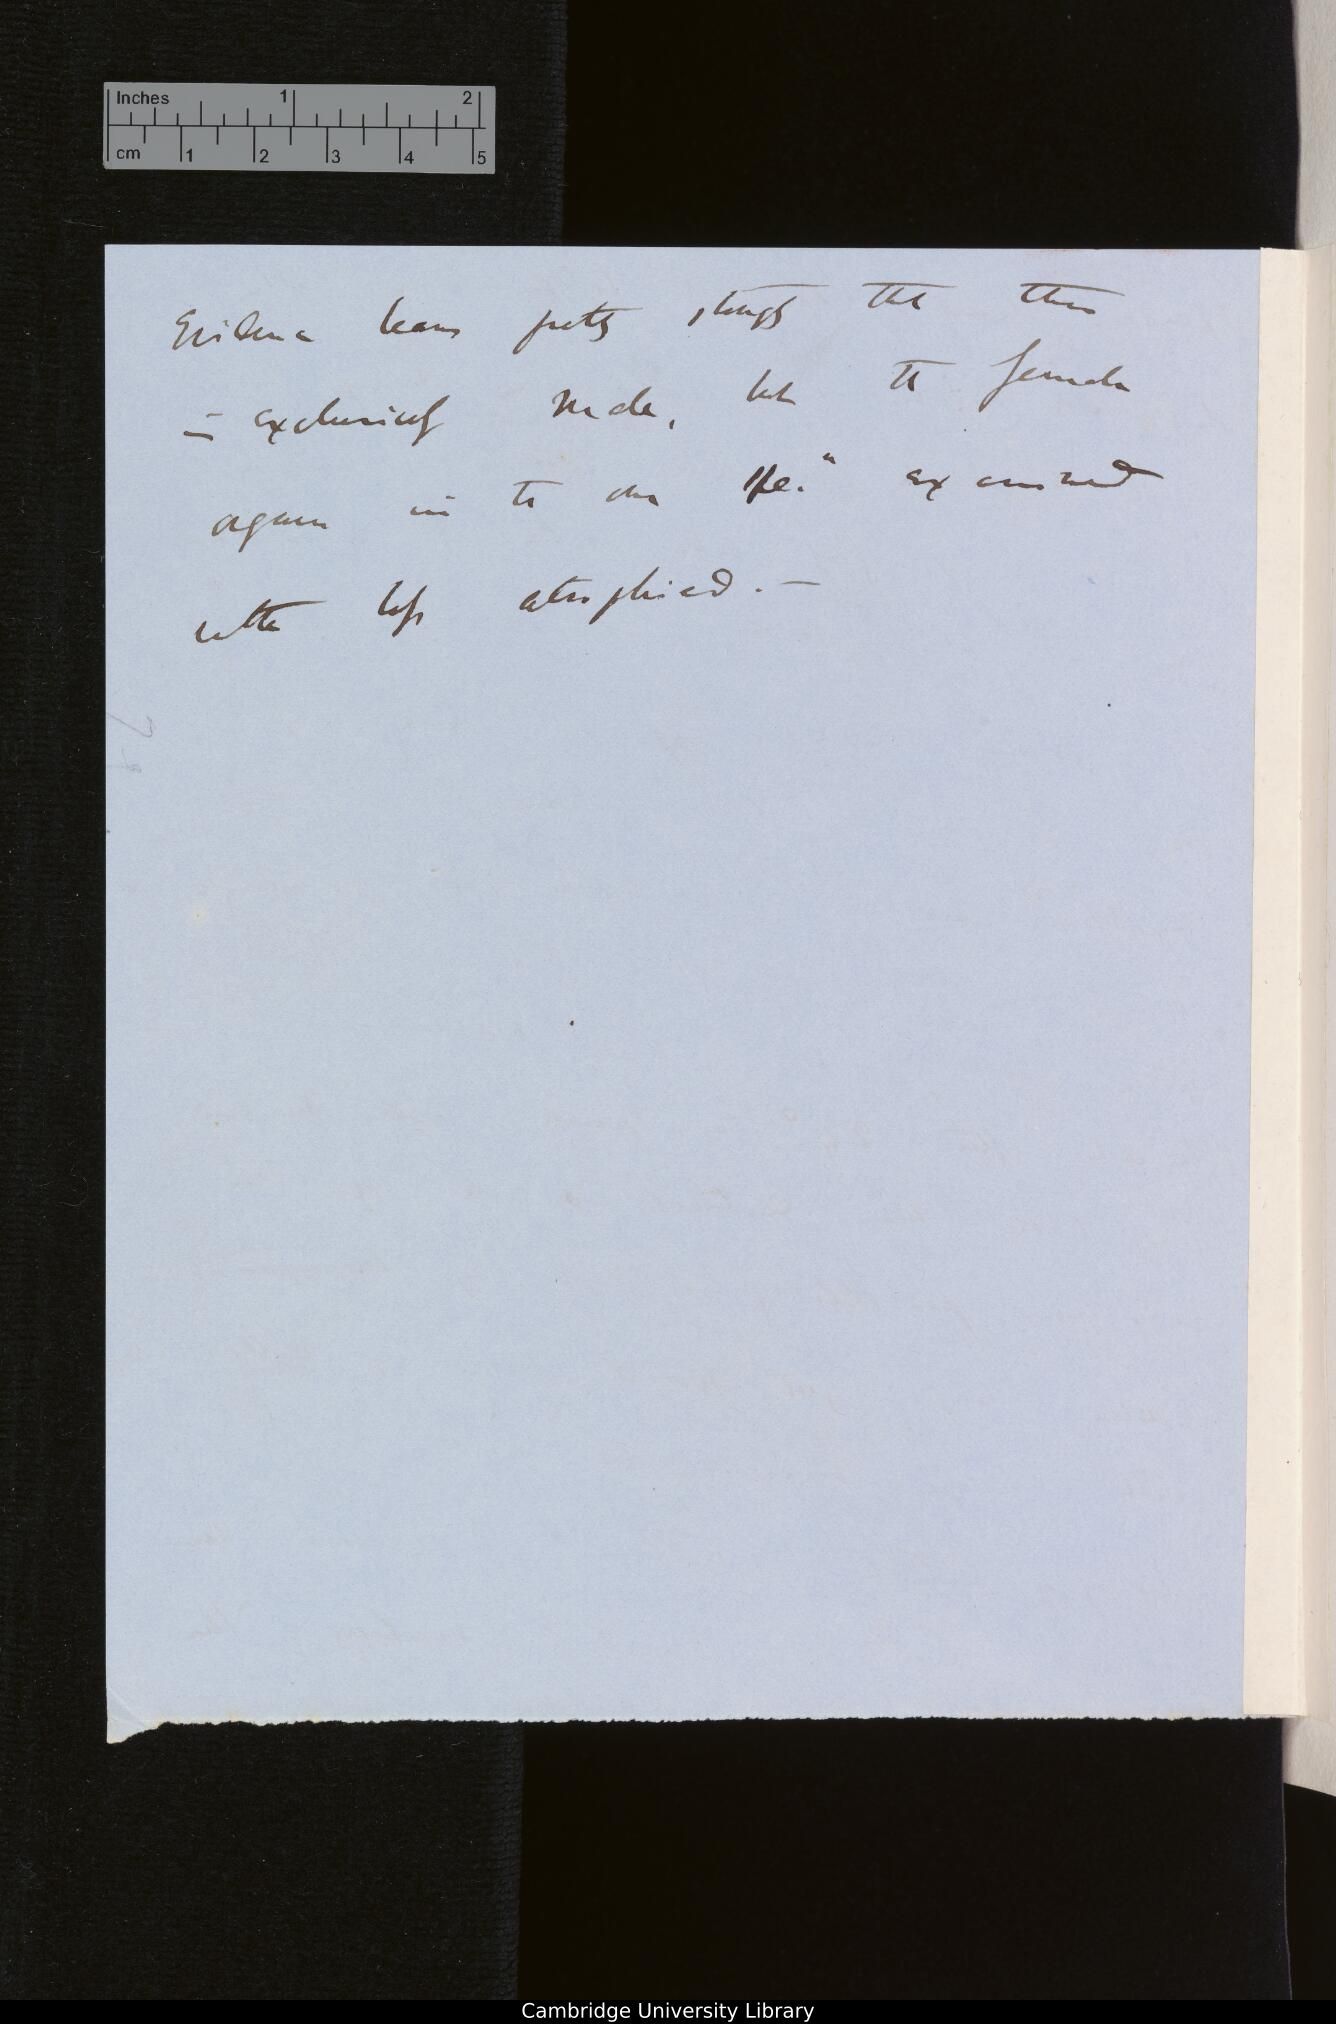 Inches 1 2
cm 1 2 3 4 5
Evidence leans pretty strongly that this
is exclusively male, but the female
again in the one examined
rather less atrophied. —
Cambridge University Library